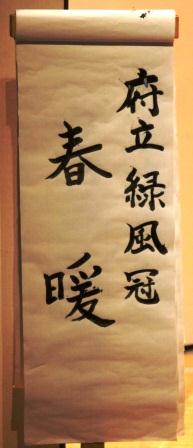 府立緑風冠
春暖